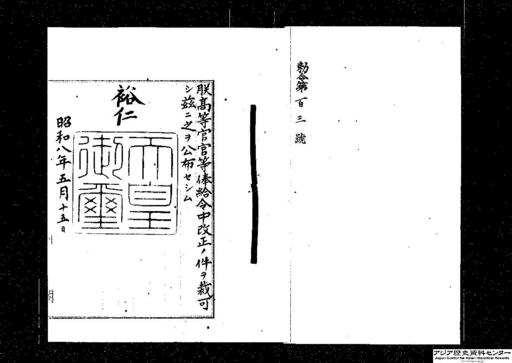 勅令第百三號
朕高等官官等俸給令中改正ノ件ヲ裁可
シ茲ニ之ヲ公布セシム
裕仁
天皇
御璽
昭和八年五月十五日
アジア歴史資料センター
Japan Center for Asian Historical Records